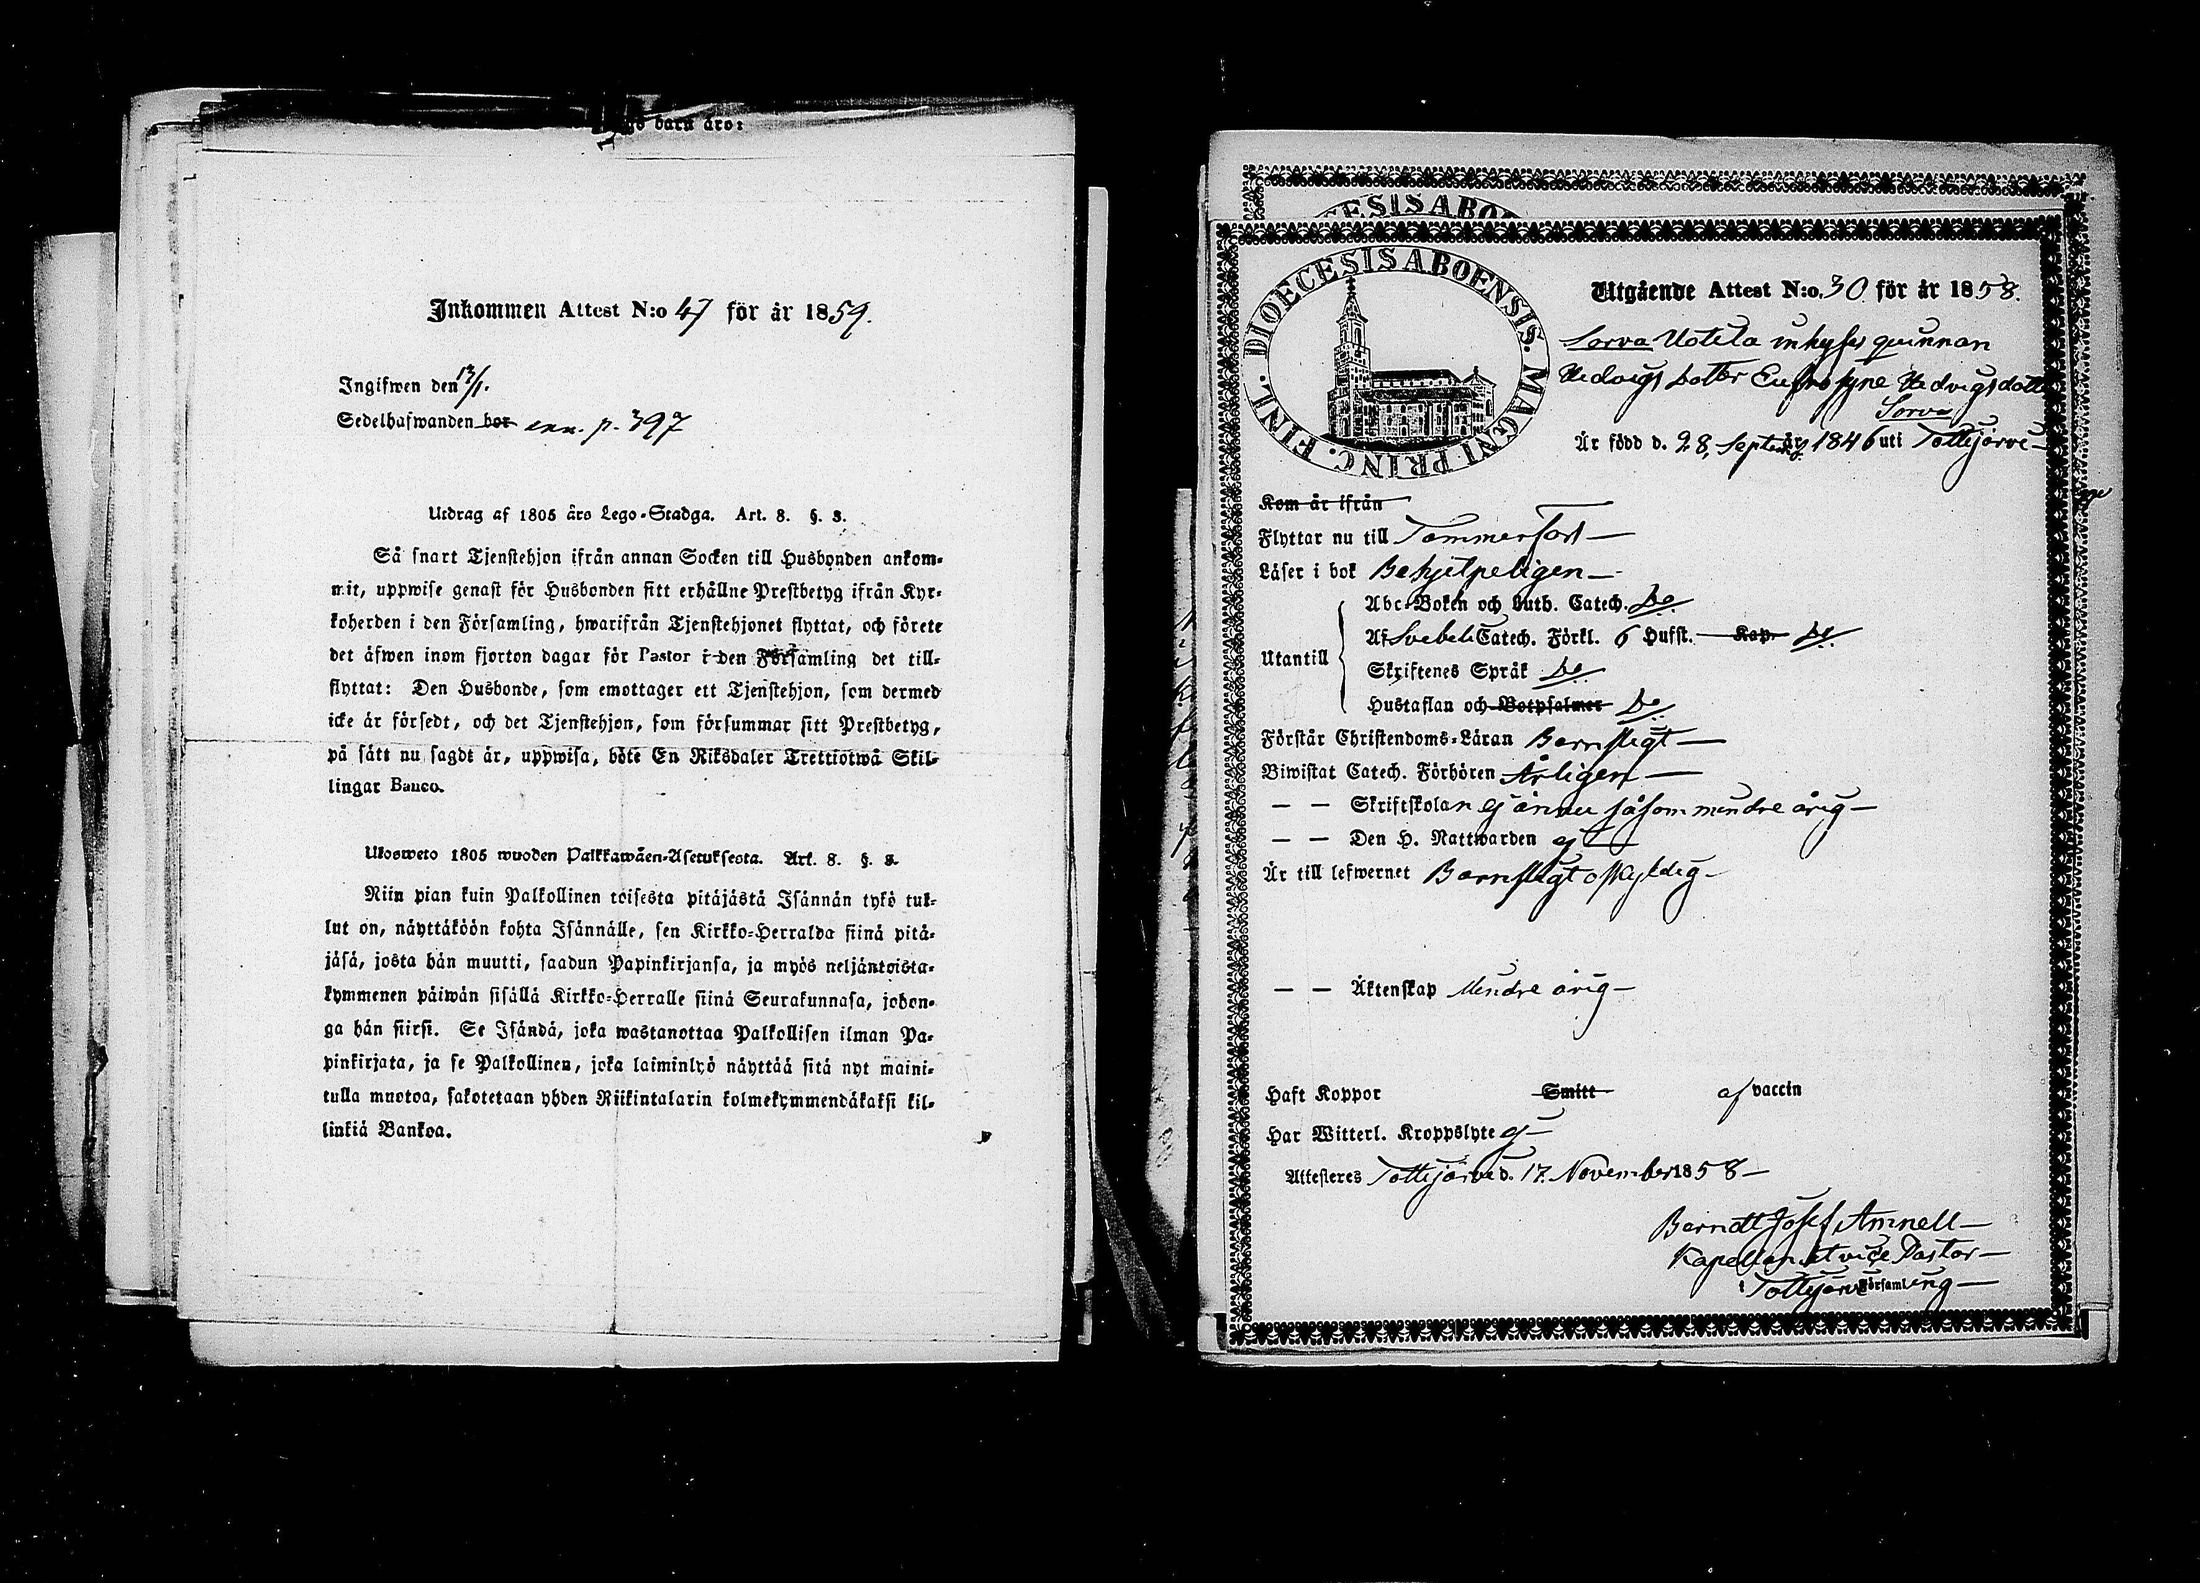 barn äro:
Inkommen Attest N:o 47 för år 1859.
Ingifwen den 13/1.
Sedelhafwanden bor enn. p. 397
Utdrag af 1805 års Lego-Stadga. Art. 8. §. 8.
Så snart Tjenstehjon ifrån annan Socken till Husbonden ankom-
mit, uppwise genast för Husbonden sitt erhållne Prestbetyg ifrån Kyr-
koherden i den Församling, hwarifrån Tjenstehjonet flyttat, och förete
det äfwen inom fjorton dagar för Pastor i den Församling det till-
flyttat: Den Husbonde, som emottager ett Tjenstehjon, som dermed
icke är försedt, och det Tjenstehjon, som försummar sitt Prestbetyg,
på sätt nu sagdt är, uppwisa, böte En Riksdaler Trettiotwå Skil-
lingar Banco.
Ulosweto 1805 wuoden Palkkawäen-Asetuksesta. Art. 8. §. 8.
Niin pian kuin Palkollinen toisesta pitäjästä Isännän tykö tul-
lut on, näyttäköön kohta Isännälle, sen Kirkko-Herralda siinä pitä-
jäsä, josta hän muutti, saadun Papinkirjansa, ja myös neljäntoista-
kymmenen päiwän sisällä Kirkko-Herralle siinä Seurakunnasa, johon-
ga hän siirsi. Se Isändä, joka wastanottaa Palkollisen ilman Pa-
pinkirjata, ja se Palkollinen, joka laiminlyö näyttää sitä nyt maini-
tulla muotoa, sakotetaan yhden Riikintalarin kolmekymmendäkaksi kil-
linkiä Bankoa.
DIOECESIS ABO
DIOECESIS ABOENSIS. MAGNI PRINC. FINL.
Utgående Attest N:o 30 för år 1858.
Sorva Uotila inhyses quinnan
Hedvigs dotter Eufrosyne Hedvigsdotter
Sorva
Är född d. 28, Septemb. år 1846 uti Tottijärvi
Kom år ifrån
Flyttar nu till Tammerfors
Läser i bok Behjelpeligen
Abc-Boken och Luth. Catech. Do
Utantill
Af Svebeli Catech. Förkl. 6 Hufst. Kap. Do
Skriftenes Språk Do
Hustaflan och Botpsalmer Do
Förstår Christendoms-Läran Barnsligt
Biwistat Catech. Förhören Årligen
— — Skriftskolan ej ännu såsom mindre årig
— — Den H. Nattwarden ej
Är till lefwernet Barnsligt oskyldig
— — Äktenskap Mindre årig
Haft Koppor Smitt af vaccin
Har Witterl. Kroppslyte ej
Attesteres Tottijärvi d. 17. November 1858
Berndt Josef Amnell
Kapellan et vice Pastor
i Tottijärvi Församling